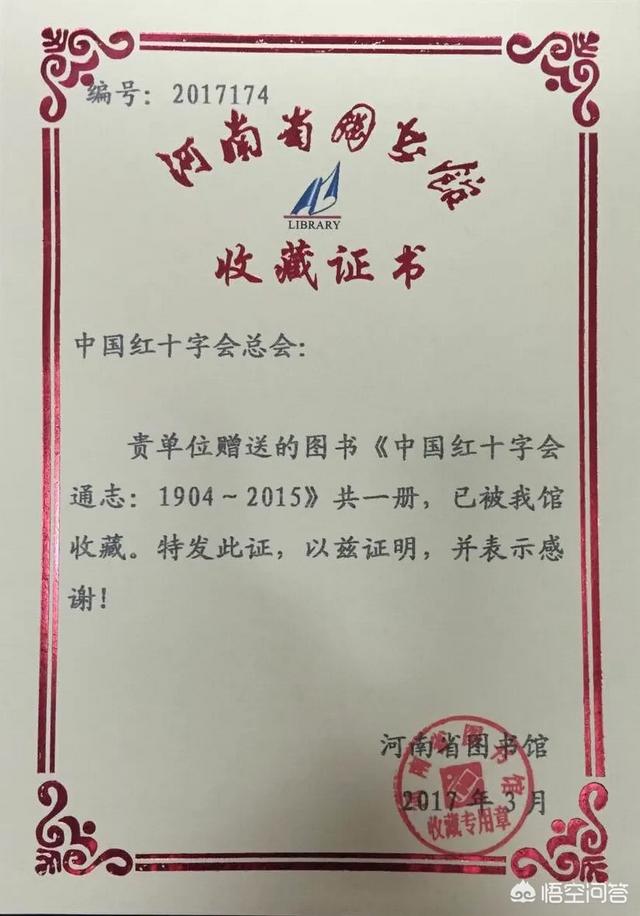 编号：2017174
河南省图书馆
LIBRARY
收藏证书
中国红十字会总会：
贵单位赠送的图书《中国红十字会
通志：1904～2015》共一册，已被我馆
收藏。特发此证，以兹证明，并表示感
谢！
河南省图书馆
2017年3月
河南省图书馆
收藏专用章
悟空问答